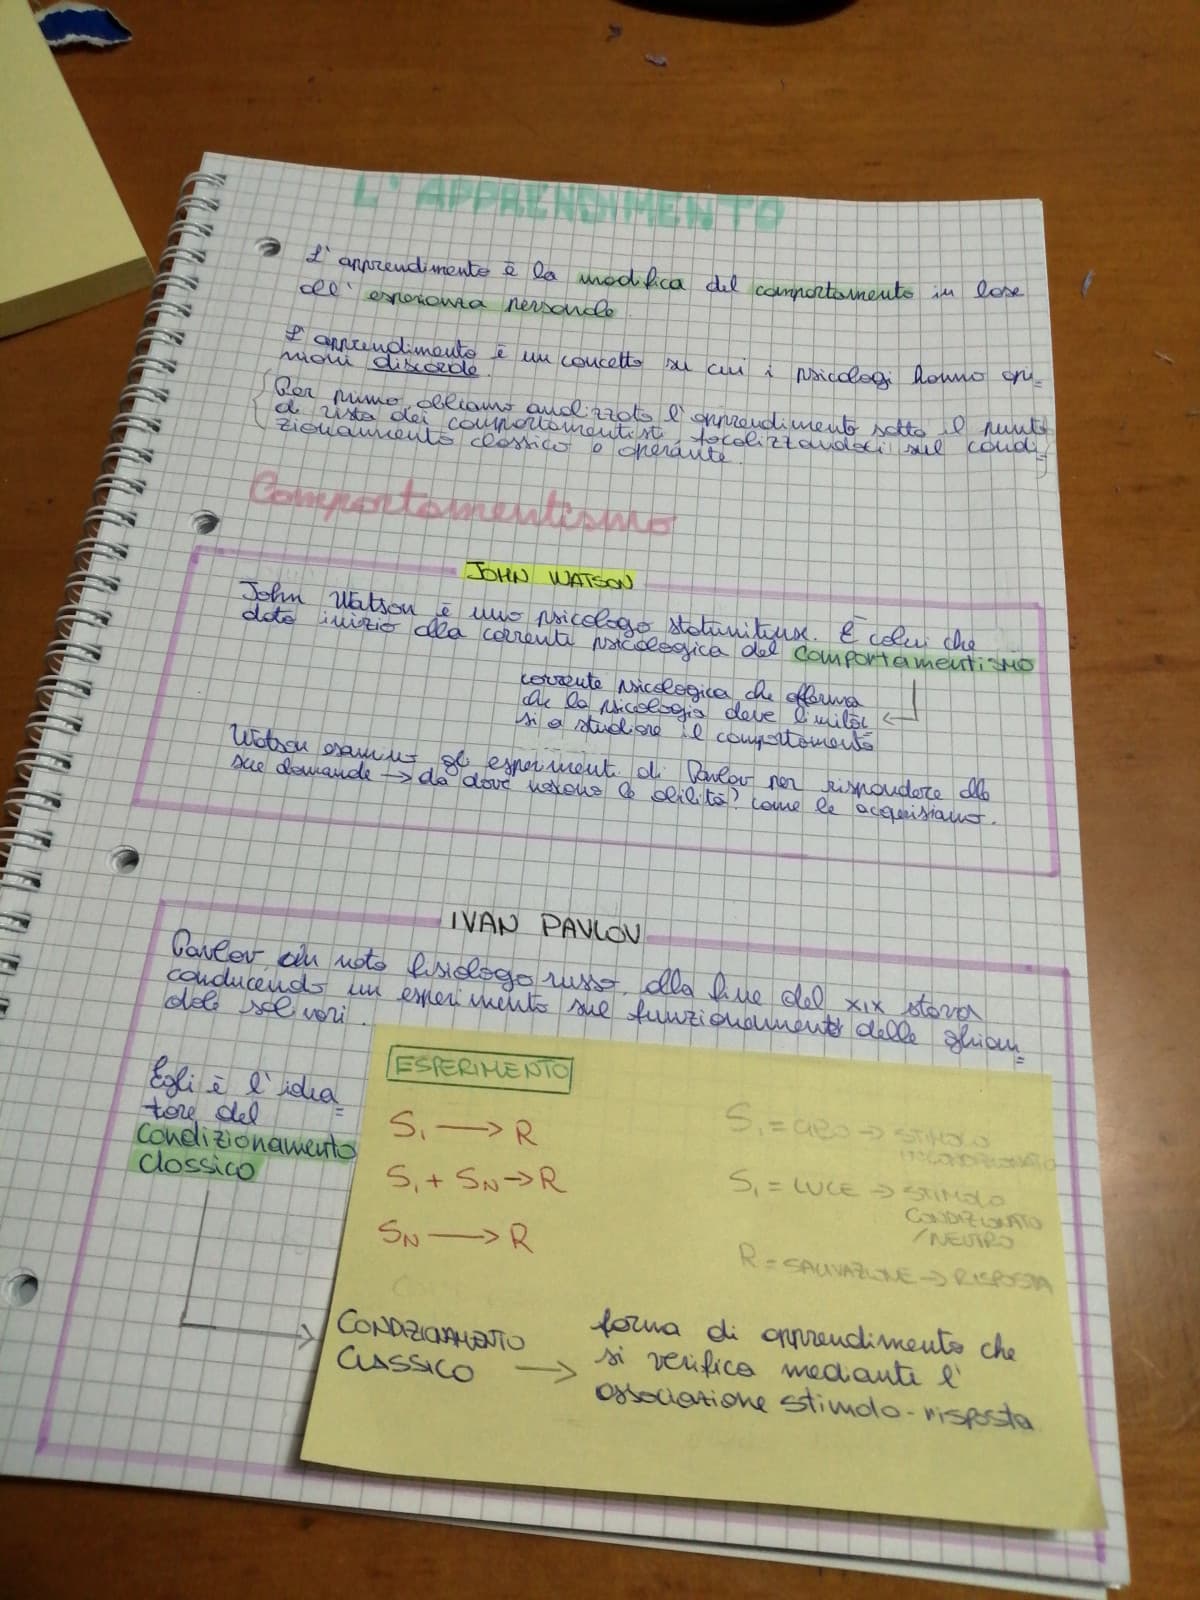 L'APPRENDIMENTO
L'apprendimento è la modifica del comportamento in base
all'esperienza personale.
L'apprendimento è un concetto su cui i psicologi hanno opi=
nioni discorde.
Per primo abbiamo analizzato l'apprendimento sotto il punto
di vista dei comportamentisti, focalizzandoci sul condi=
zionamento classico e operante.
Comportamentismo
JOHN WATSON
John Watson è uno psicologo statunitense. È colui che
dato inizio alla corrente psicologica del comportamentismo
corrente psicologica che afferma
che la psicologia deve limitar
si a studiare il comportamento
Watson esamino gli esperimenti di Pavlov per rispondere alle
sue domande → da dove nascono le abilità? come le acquisiamo.
IVAN PAVLOV
Pavlov un noto fisiologo russo, alla fine del XIX stava
conducendo un esperimento sul funzionamento delle ghian=
dole salivari.
Egli è l'idea=
tore del
condizionamento
classico
ESPERIMENTO
S₁ → R
S₁ + SN → R
SN → R
S₁ = CIBO → STIMOLO
INCONDIZIONATO
S₁ = LUCE → STIMOLO
CONDIZIONATO
/NEUTRO
R = SALIVAZIONE → RISPOSTA
CONDIZIONAMENTO
CLASSICO →
forma di apprendimento che
si verifica mediante l'
associazione stimolo-risposta